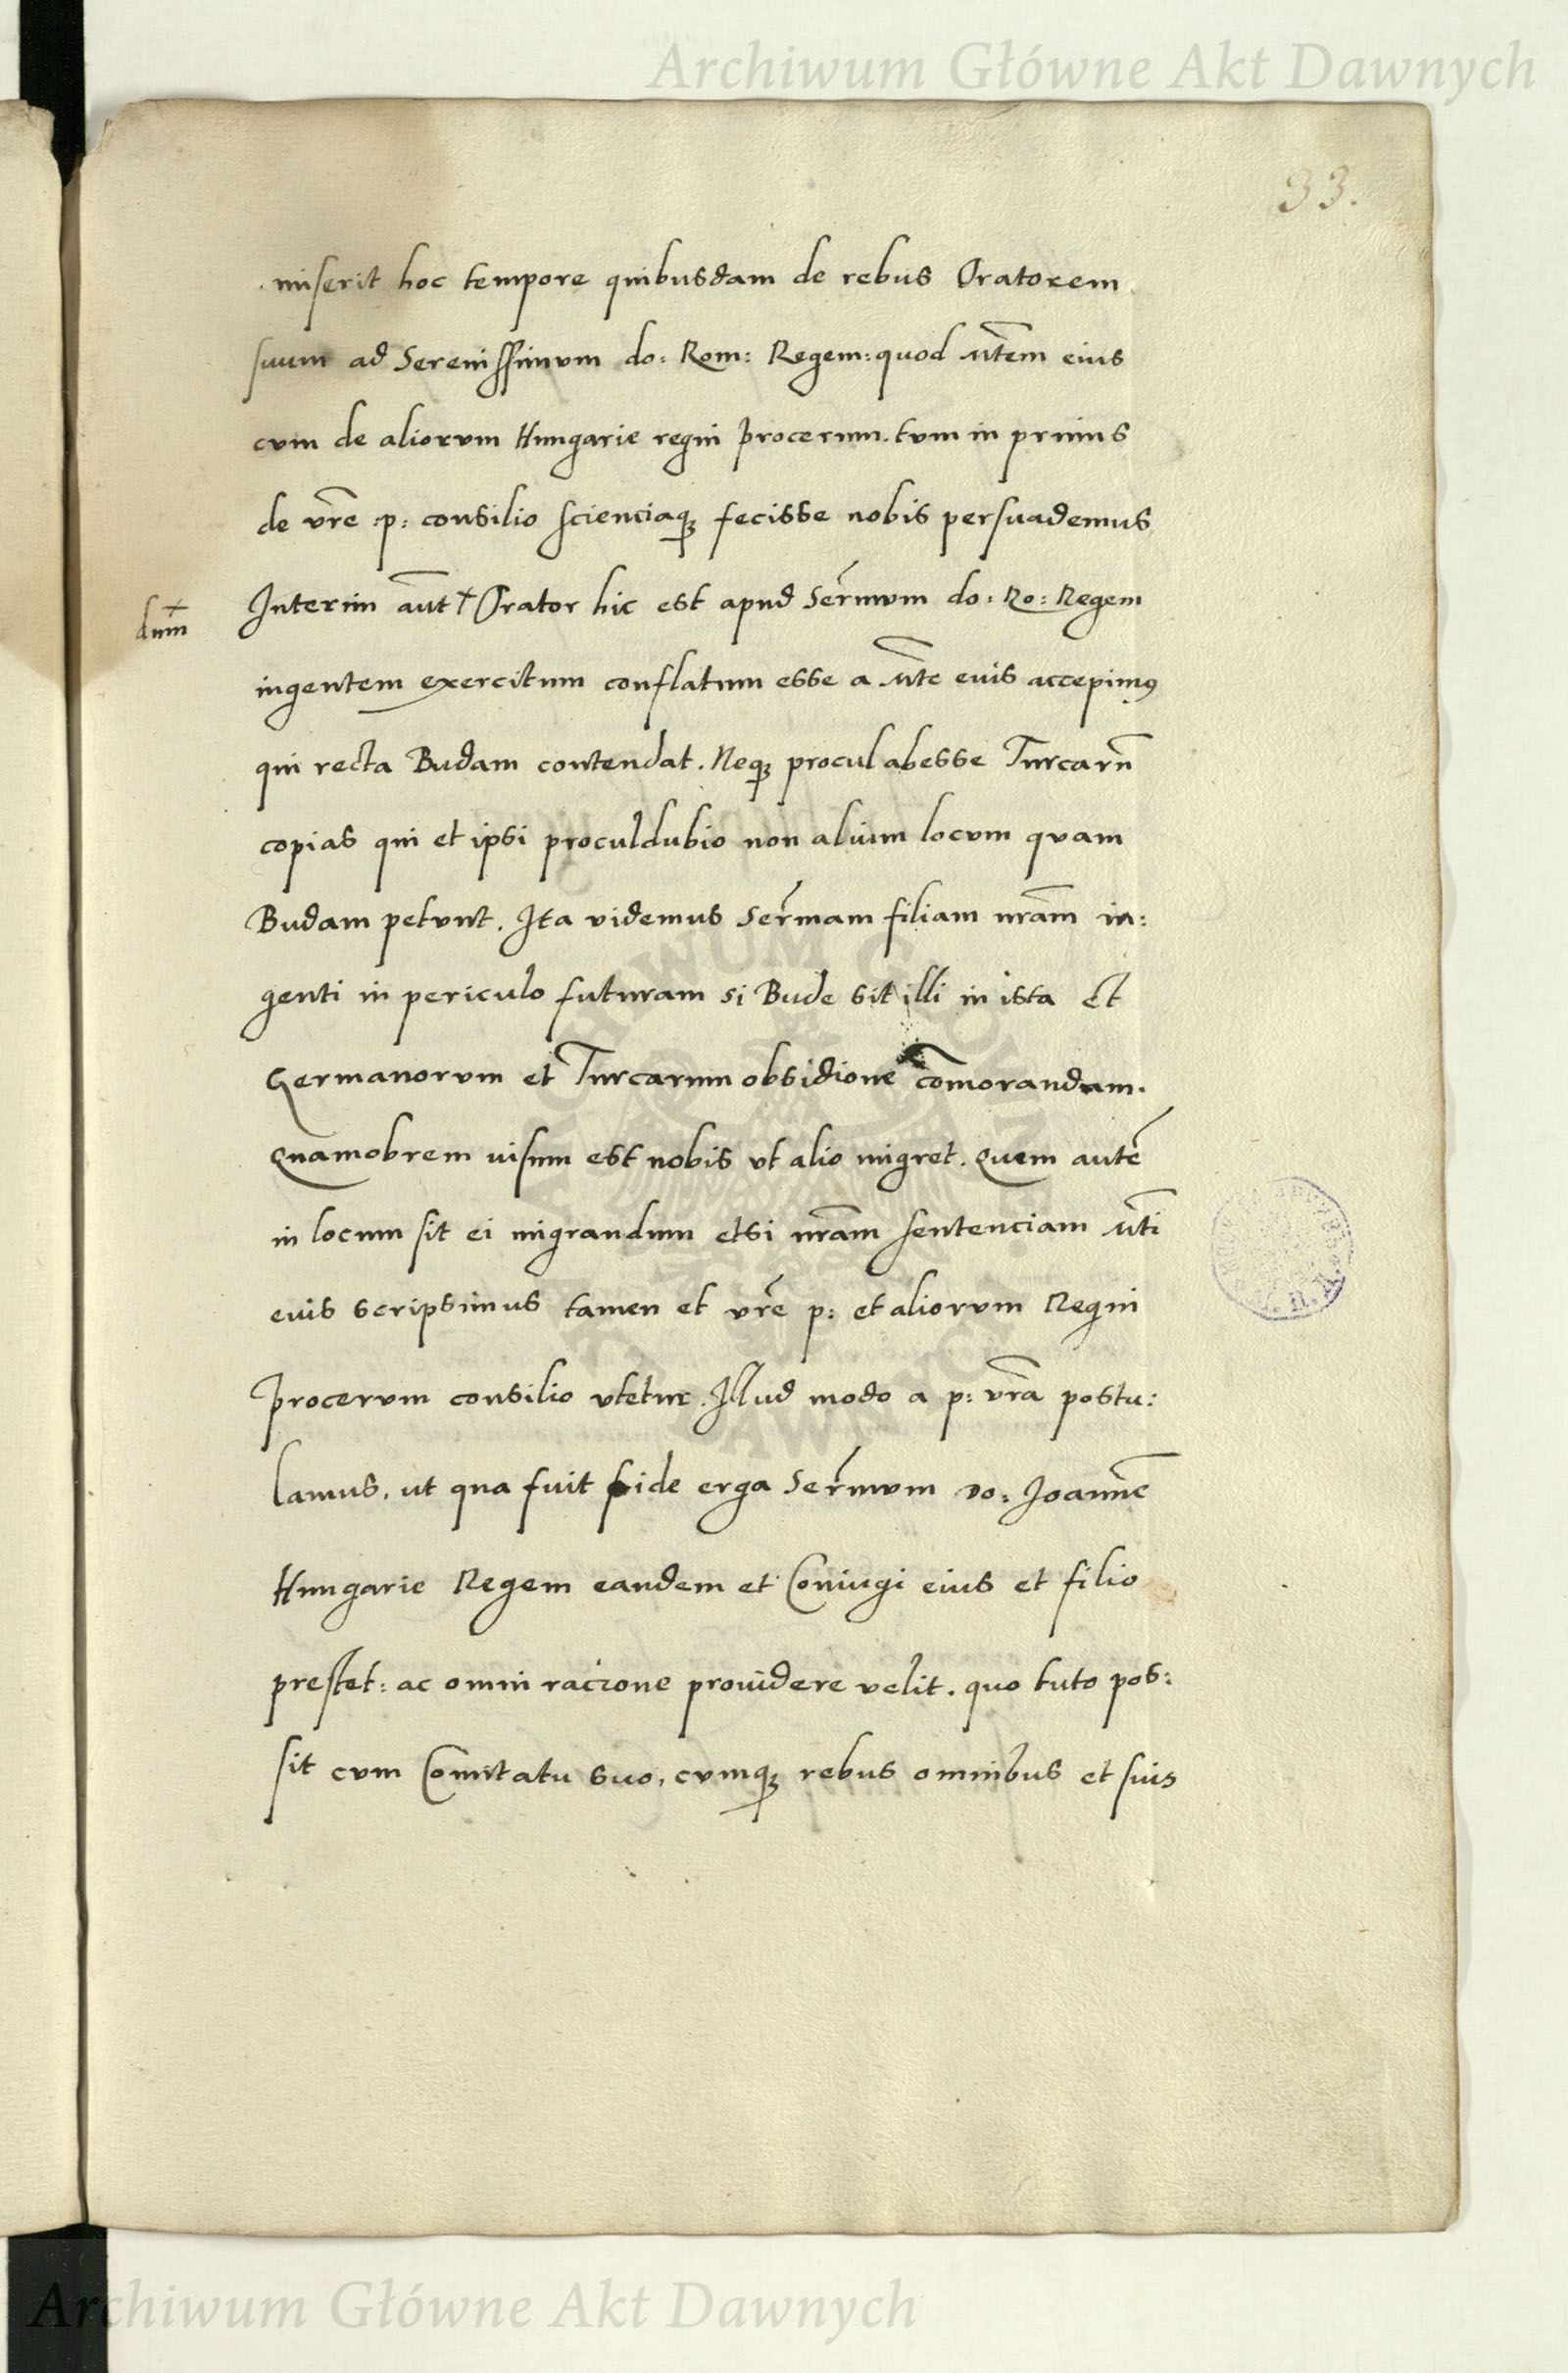 Archiwum Główne Akt Dawnych
33.
miserit hoc tempore quibusdam de rebus Oratorem
suum ad Serenissimum do: Rom: Regem: quod Mtem eius
cum de aliorum Hungarie regni procerum. tum in primis
de vre :p: consilio scienciaq3 fecisse nobis persuademus
Interim aut† Orator hic est apud Sermum do: Ro: Regem
† dum
ingentem exercitum conflatum esse a Mte euis accepimus
qui recta Budam contendat. Neq3 procul abesse Turcarū
copias qui et ipsi proculdubio non alium locum quam
Budam petunt. Ita videmus Sermam filiam nram in:
genti in periculo futuram si Bude sit illi in ista Et
Germanorum et Turcarum obsidione cōmorandum.
Quamobrem uisum est nobis vt alio migret. Quem autē
in locum sit ei migrandum etsi nram sentenciam Mti
euis scripsimus tamen et vre p: et aliorum Regni
procerum consilio vtetur. Illud modo a p: vra postu:
lamus, ut qua fuit fide erga Sermum do: Joannē
Hungarie Regem eandem et Coniugi eius et filio
prestet: ac omni racione prouidere velit. quo tuto pos:
sit cum Comitatu suo, cumq3 rebus omnibus et suis
Archiwum Główne Akt Dawnych